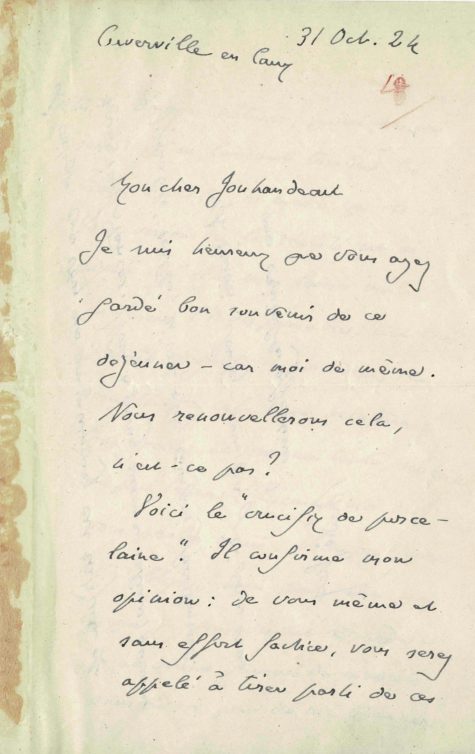 Cuverville en Caux
31 Oct. 24
Mon cher Jouhandeau
Je suis heureux que vous ayez
gardé bon souvenir de ce
dejeuner — car moi de même.
Nous renouvellerons cela,
n'est-ce pas?
Voici le "crucifix de porce-
laine". Il confirme mon
opinion: de vous même et
sans effort factice, vous serez
appelé à tirer parti de ces